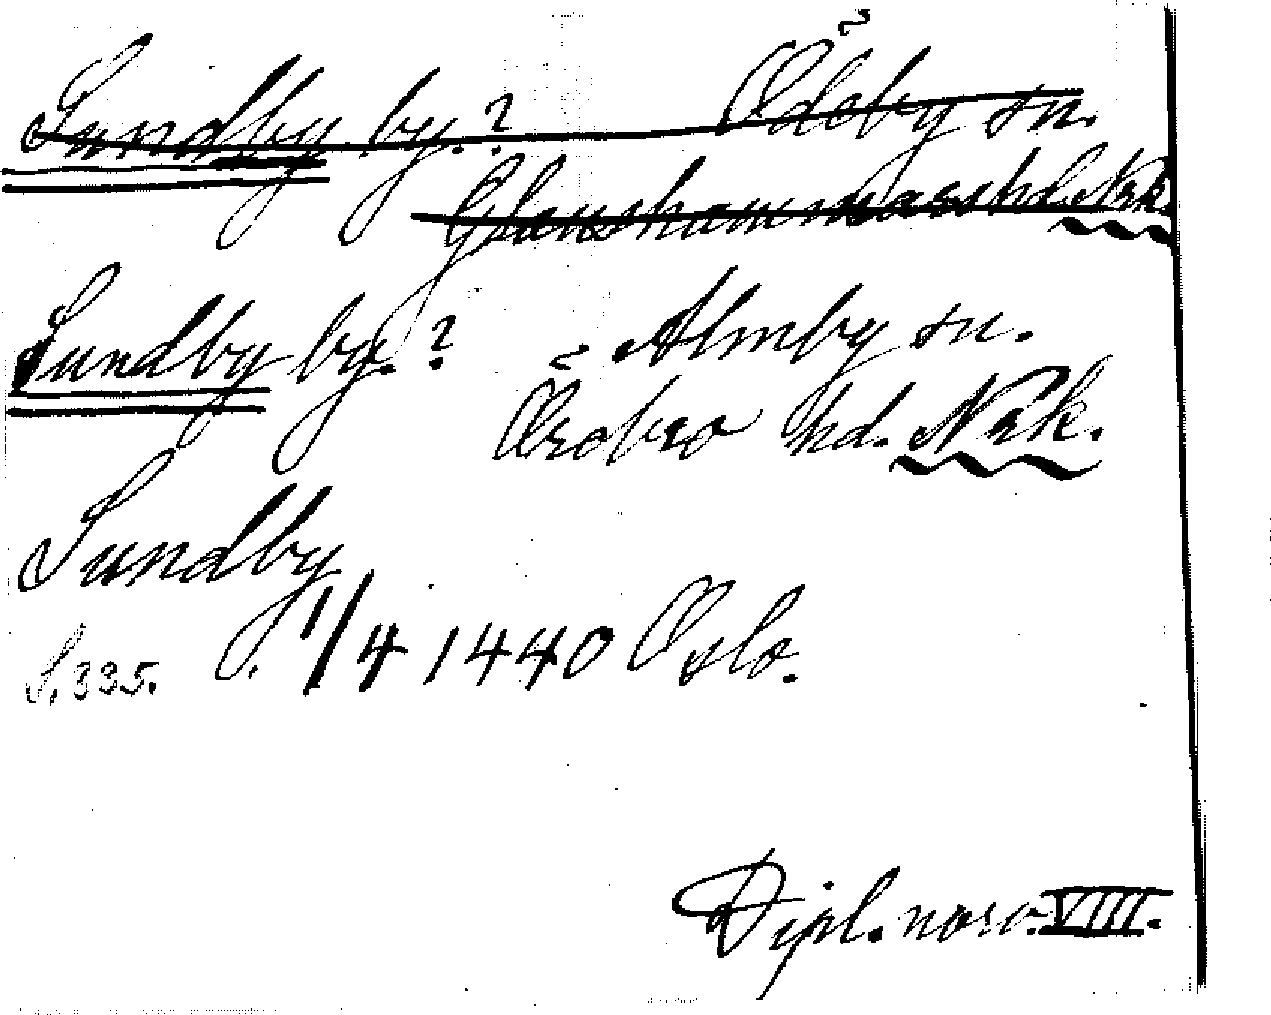 Sundby by.? Ödeby sn.
Glanshammars hd. Nrk.
Sundby by.? Almby sn.
Örebro hd. Nrk.
Sundby
S. 335. 1/4 1440 Oslo.
Dipl. norv. VIII.